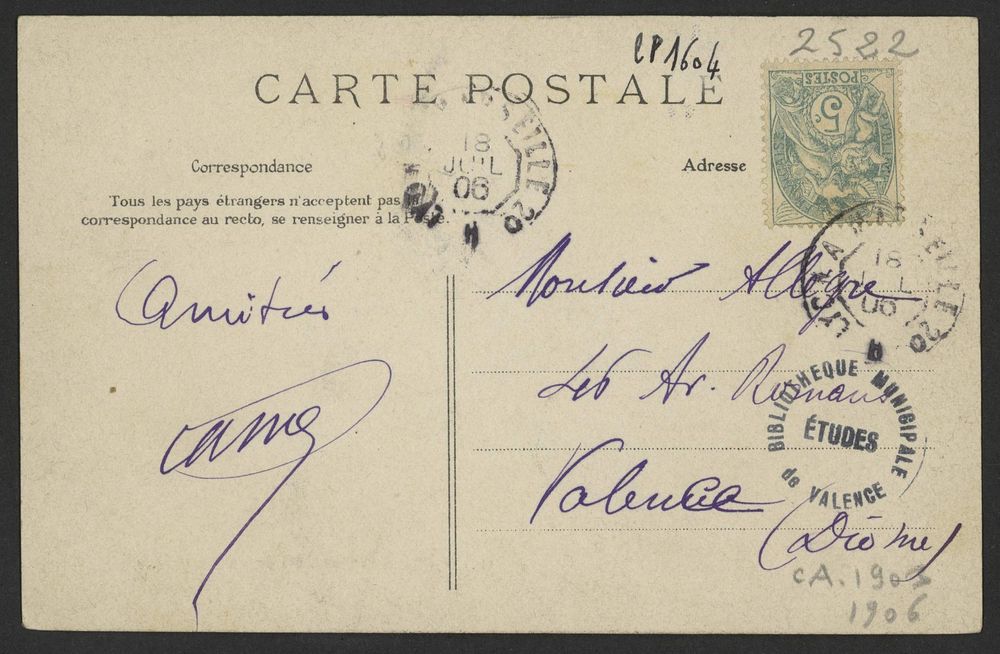 CP1604
2522
CARTE POSTALE
POSTES
5c
18
JUIL
06
18
06
Correspondance
Adresse
Tous les pays étrangers n'acceptent pas la
correspondance au recto, se renseigner à la Poste.
Amitiés
Monsieur Allègre
46 Av. Romans
Valence
(Drôme)
BIBLIOTHEQUE MUNICIPALE
ÉTUDES
de VALENCE
CA. 190
1906